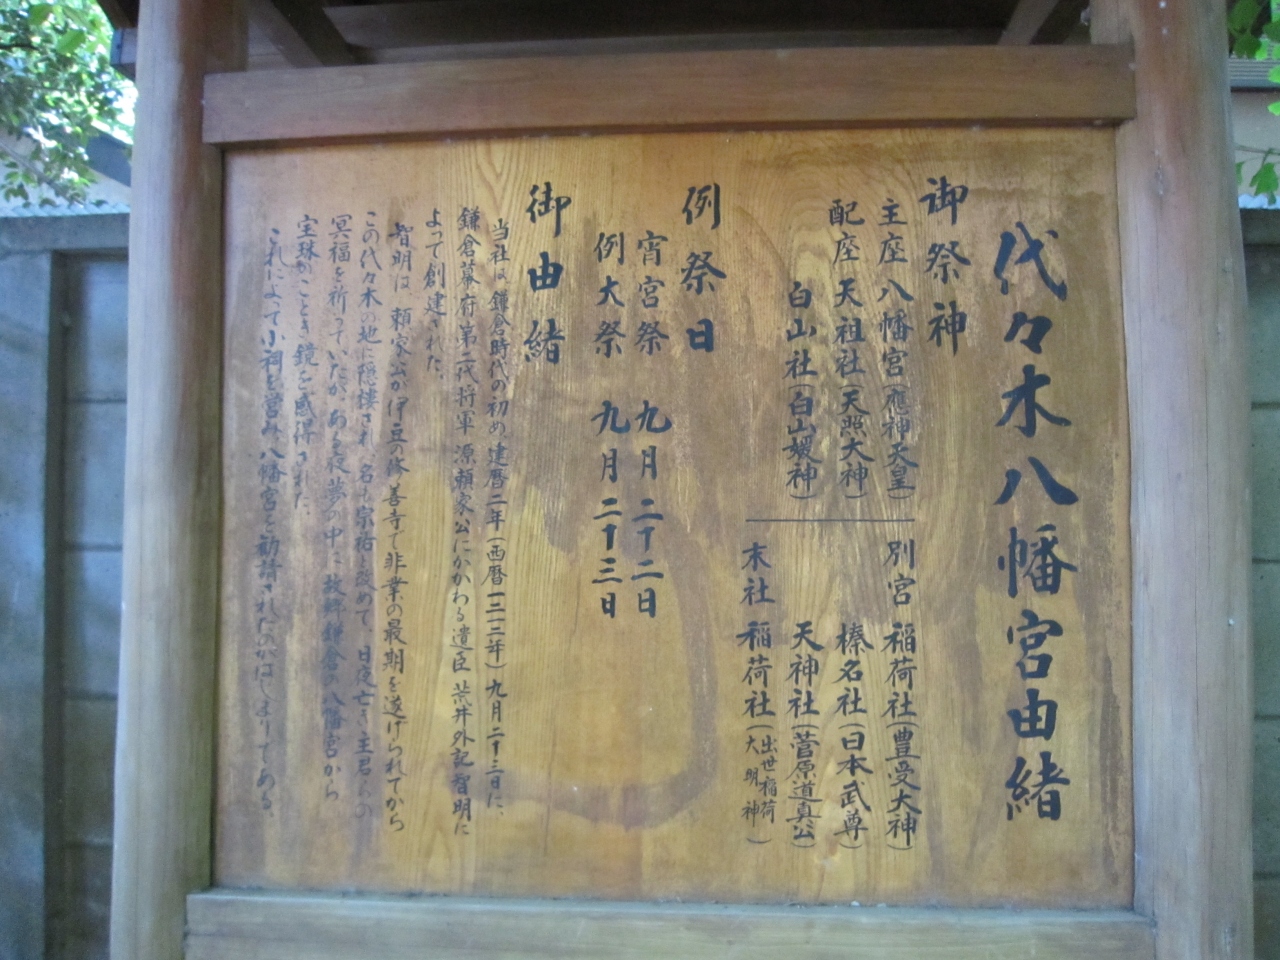 代々木八幡宮由緒
御祭神
主座 八幡宮(應神天皇)
配座 天祖社(天照大神)
白山社(白山媛神)
別宮 稲荷社(豊受大神)
榛名社(日本武尊)
天神社(菅原道真公)
末社 稲荷社(出世稲荷大明神)
例祭日
宵宮祭 九月二十二日
例大祭 九月二十三日
御由緒
当社は鎌倉時代の初め、建暦二年(西暦一二一二年)九月二十三日に、
鎌倉幕府第二代将軍 源頼家公にかかわる遺臣 荒井外記智明に
よって創建された。
智明は、頼家公が伊豆の修善寺で非業の最期を遂げられてから
この代々木の地に隠棲され、名も宗祐と改めて、日夜亡き主君らの
冥福を祈っていたが、ある夜夢の中に故郷鎌倉の八幡宮から
宝珠のごとき鏡を感得された。
これによって小祠を営み八幡宮を勧請されたのがはじまりである。